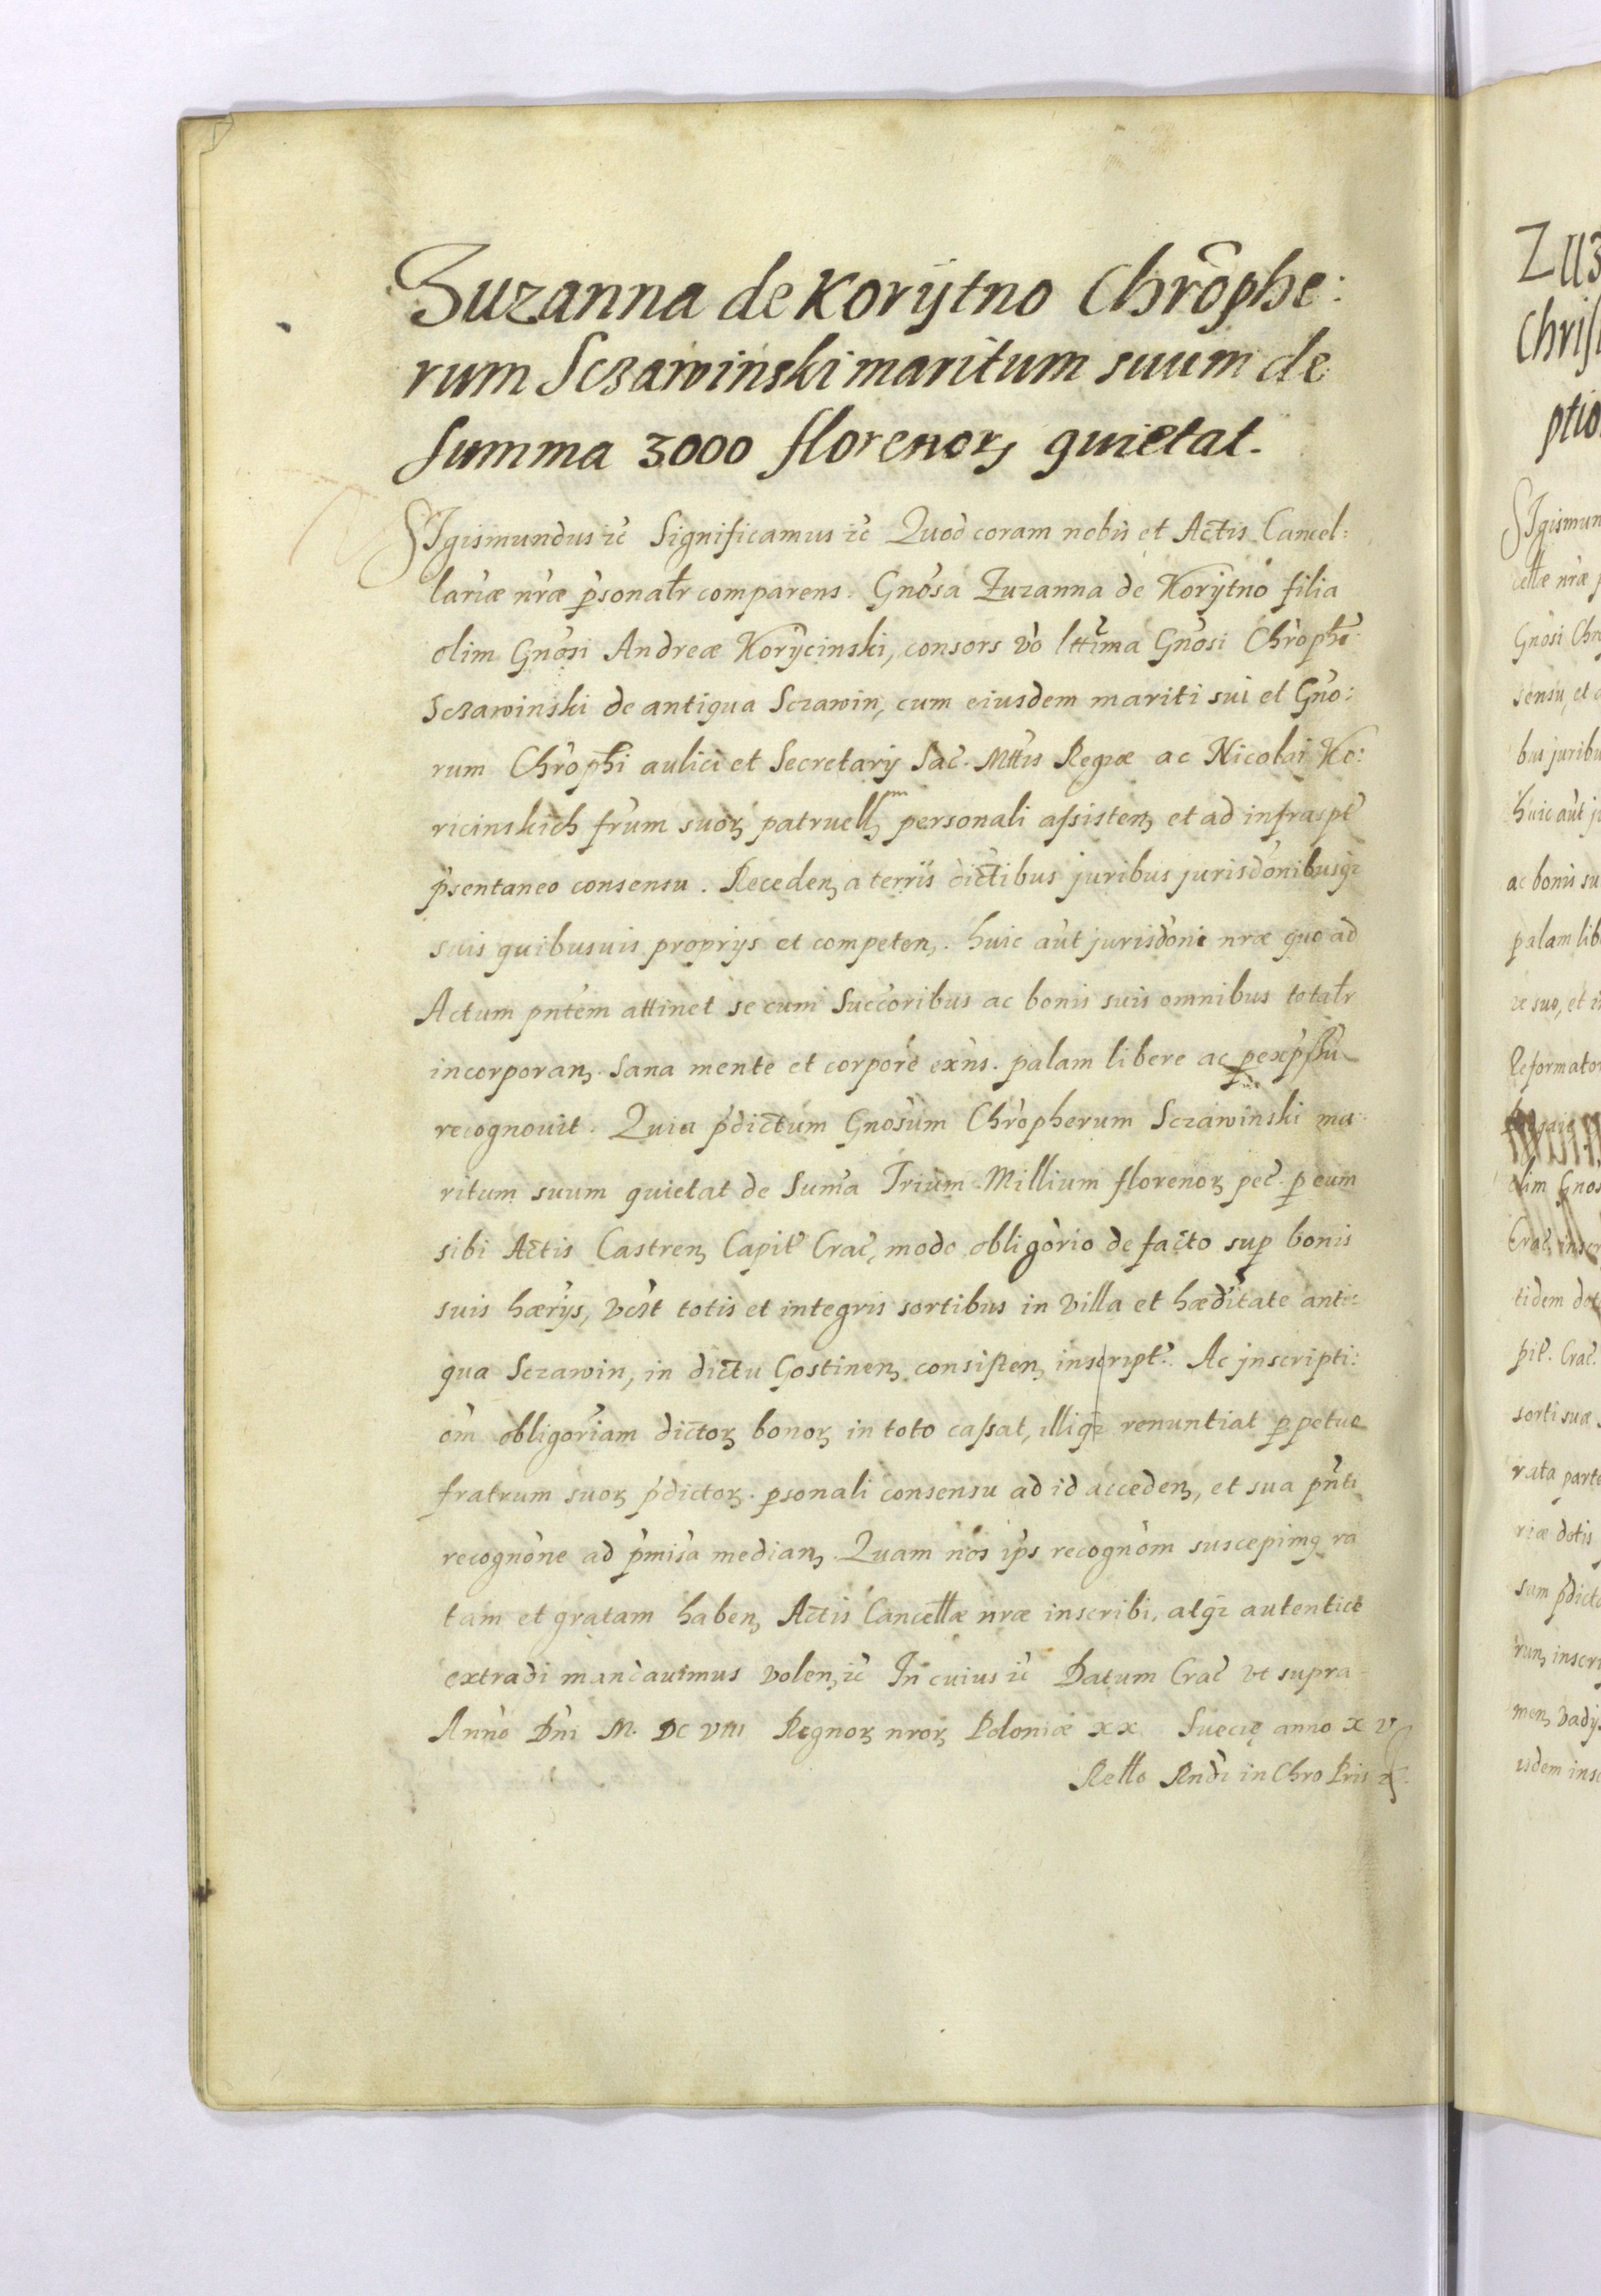 Zuzanna de Korÿtno Chrõphe:
rum Sczawinski maritum suum de
summa 3000 florenorꝫ quietat.
SIgismundus ꝛc̃ Significamus ꝛc̃ Quod coram nobis et Actis Cancel:
lariæ nr̃æ p̃sonalr̃ comparens. Gnosa Zuzanna de Korÿtno filia
olim Gnosi Andreæ Korÿcinski, consors vo lttima Gnosi Chrophe:
Sczawinski de antiqua Sczawin, cum eiusdem mariti sui et Gno:
rum Chrophi aulici et Secretarij Sac̃. Mttis Regiæ ac Nicolai Ko:
ricinskich frum suorꝫ patruelꝫ personali assistenꝫ et ad infraspt̃
p̃sentaneo consensu. Recedenꝫ a terriis dictibus juribus jurisdonibusqꝫ
suis quibusuis proprijs et competenꝫ. huic aut jurisdoni nræ quo ad
Actum pntem attinet se cum Succoribus ac bonis suis omnibus totalr̃
incorporanꝫ. Sana mente et corpore exns. palam libere ac ꝑ expssu
recognouit. Quia p̃dictum Gnosum Chropherum Sczawinski ma:
ritum suum quietat de Suma Trium Millium florenorꝫ pec̃. ꝑ eum
sibi Actis Castrenꝫ Capit̃ Crac̃, modo obligorio de facto suꝑ bonis
suis hærijs, vcst totis et integris sortibus in villa et hæditate anti:
qua Sczawin, in dictu Gostinenꝫ consistenꝫ inscript̃. Ac jnscripti:
om obligoriam dictorꝫ bonorꝫ in toto cassat, illiqꝫ renuntiat ꝑpetue
fratrum suorꝫ p̃dictorꝫ. ꝑsonali consensu ad id accedenꝫ, et sua pnti
recognone ad p̃misa medianꝫ. Quam nos ips recognom suscepimꝯ ra
tam et gratam habenꝫ Actis Cancellæ nræ inscribi, atqꝫ autentice
extradi mandauimus volenꝫ ꝛc̃ In cuius ꝛc̃ Datum Crac̃ vt supra
Anno Dni M. DC VIII Regnorꝫ nrorꝫ Poloniæ XX Suecię anno X V
Rello Rndi in Chro Pris ꝛc̃.
Zuz
Chris
ptio
SIgismun
cellæ nræ p
Gnosi Chro
sensu, et a
bus juribu
huic aut ju
ac bonis su
palam libe
re suo, et i
Reformator
olim Gnos
Crac̃, inscr
tidem dot
pit̃. Crac̃.
sorti suæ
rata parte
riæ dotis
sum p̃dicto
runꝫ inscri
menꝫ vadijs
isdem insc